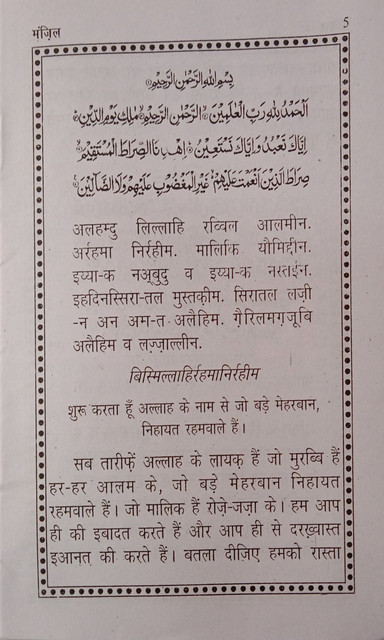 मंज़िल
5
بِسْمِ اللهِ الرَّحْمٰنِ الرَّحِيْمِ
اَلْحَمْدُ لِلّٰهِ رَبِّ الْعٰلَمِيْنَ الرَّحْمٰنِ الرَّحِيْمِ مٰلِكِ يَوْمِ الدِّيْنِ
اِيَّاكَ نَعْبُدُ وَاِيَّاكَ نَسْتَعِيْنُ اِهْدِنَا الصِّرَاطَ الْمُسْتَقِيْمَ
صِرَاطَ الَّذِيْنَ اَنْعَمْتَ عَلَيْهِمْ غَيْرِ الْمَغْضُوْبِ عَلَيْهِمْ وَلَا الضَّآلِّيْنَ
अलहम्दु लिल्लाहि रब्बिल आलमीन.
अर्रहमा निर्रहीम. मालिकि यौमिद्दीन.
इय्या-क नअ्बुदु व इय्या-क नस्तईन.
इहदिनस्सिरा-तल मुस्तक़ीम. सिरातल लज़ी
-न अन अम-त अलैहिम. ग़ैरिलमग़ज़ूबि
अलैहिम व लज़्ज़ाल्लीन.
बिस्मिल्लाहिर्रहमानिर्रहीम
शुरू करता हूँ अल्लाह के नाम से जो बड़े मेहरबान,
निहायत रहमवाले हैं।
सब तारीफ़ें अल्लाह के लायक़ हैं जो मुरब्बि हैं
हर-हर आलम के, जो बड़े मेहरबान निहायत
रहमवाले हैं। जो मालिक हैं रोज़े-जज़ा के। हम आप
ही की इबादत करते हैं और आप ही से दरख़्वास्त
इआनत् की करते हैं। बतला दीजिए हमको रास्ता